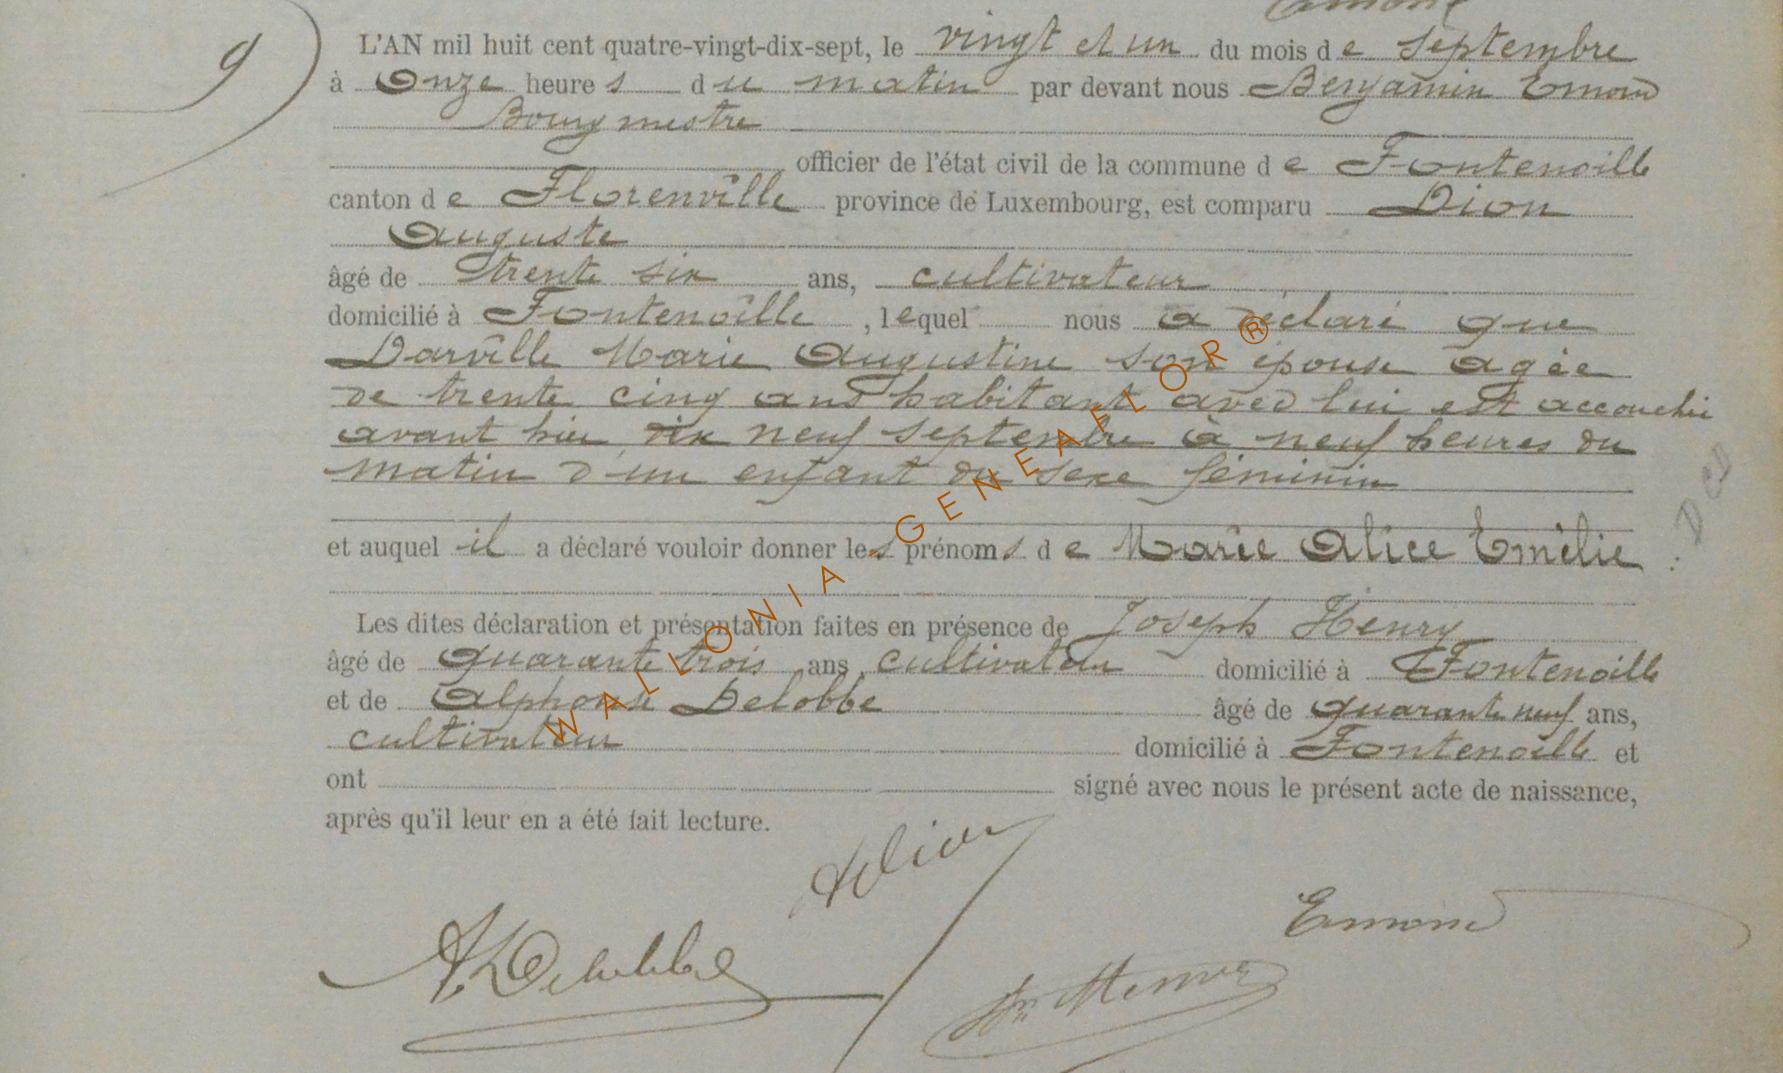 9
L'AN mil huit cent quatre-vingt-dix-sept, le vingt et un du mois de septembre
à Onze heures du matin par devant nous Benjamin Emond
Bourgmestre
officier de l'état civil de la commune de Fontenoille
canton de Florenville province de Luxembourg, est comparu Dion
Auguste
âgé de trente six ans, cultivateur
domicilié à Fontenoille, lequel nous a déclaré que
Darville Marie Augustine son épouse agée
de trente cinq ans habitant avec lui est accouchée
avant hier dix neuf septembre à neuf heures du
matin d'un enfant du sexe féminin
et auquel il a déclaré vouloir donner les prénoms de Marie Alice Emélie
Les dites déclaration et présentation faites en présence de Joseph Henry
âgé de quarante trois ans, cultivateur domicilié à Fontenoille
et de Alphonse Delobbe âgé de quarante neuf ans,
cultivateur domicilié à Fontenoille et
ont signé avec nous le présent acte de naissance,
après qu'il leur en a été fait lecture.
ADion
A. Delobbe
Emond
Henry
DCD
WALLONIA GENEAFLOR®